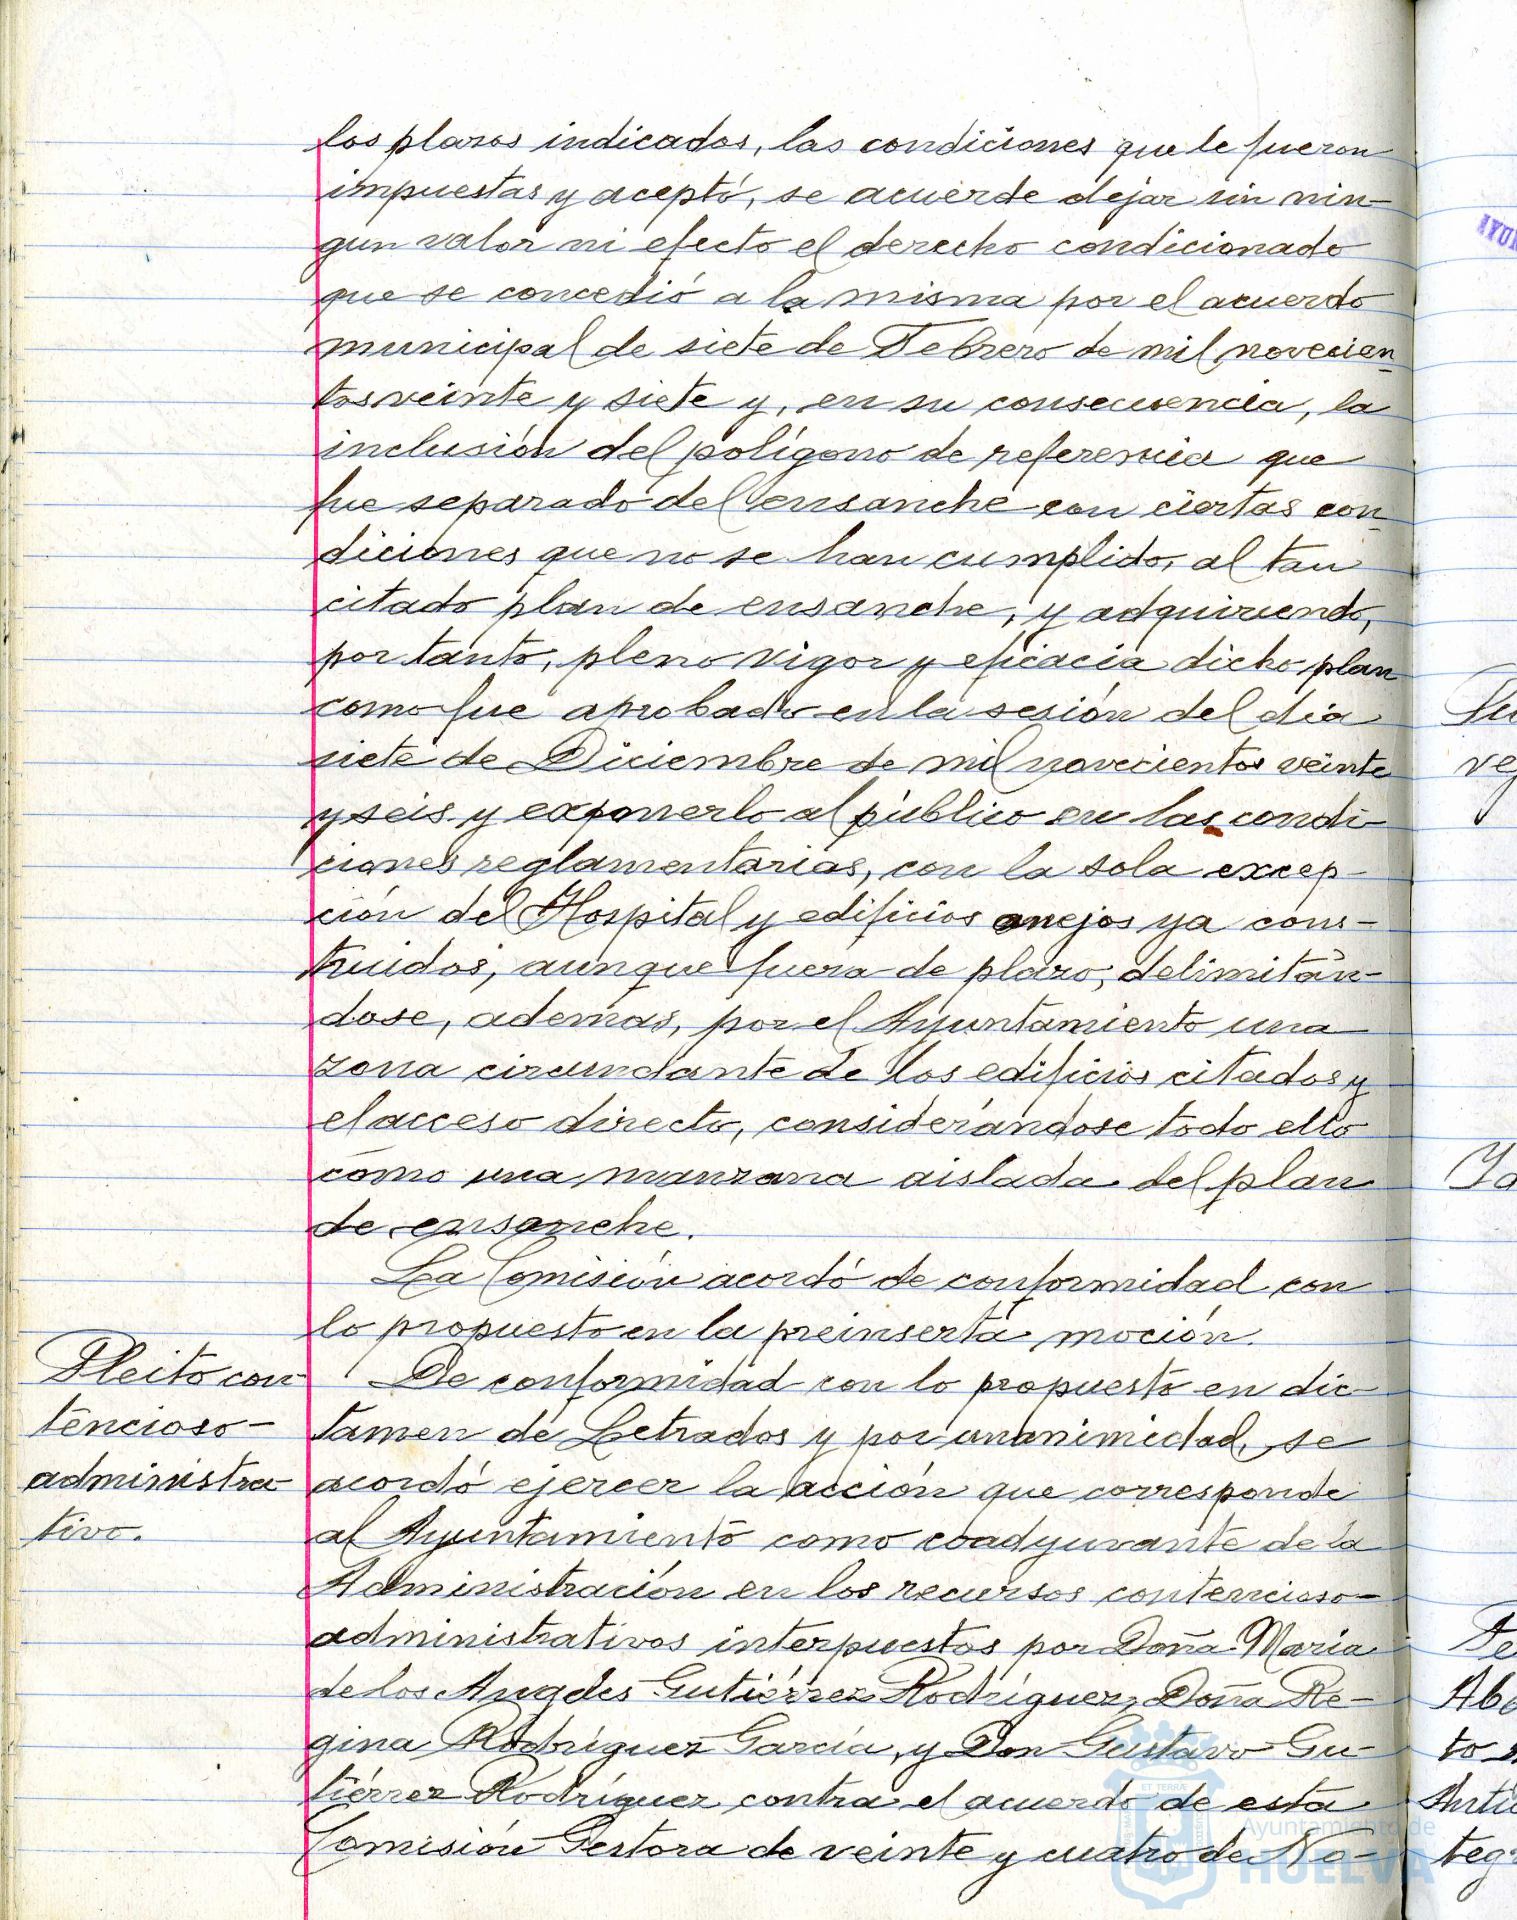 los plazos indicados, las condiciones que le fueron
impuestas y aceptó, se acuerde dejar sin nin-
gun valor ni efecto el derecho condicionado
que se concedió a la misma por el acuerdo
municipal de siete de Febrero de mil novecien-
tos veinte y siete y, en su consecuencia, la
inclusión del polígono de referencia que
fue separado del ensanche con ciertas con-
diciones que no se han cumplido, al tan
citado plan de ensanche, y adquiriendo,
por tanto, pleno vigor y eficacia dicho plan
como fue aprobado en la sesión del dia
siete de Diciembre de mil novecientos veinte
y seis y exponerlo al público en las condi-
ciones reglamentarias, con la sola excep-
ción del Hospital y edificios anejos ya cons-
truidos, aunque fuera de plazo, delimitán-
dose, además, por el Ayuntamiento una
zona circundante de los edificios citados y
el acceso directo, considerándose todo ello
como una manzana aislada del plan
de ensanche.
La Comisión acordó de conformidad con
lo propuesto en la preinserta moción.
Pleito con-
tencioso-
administra-
tivo.
De conformidad con lo propuesto en dic-
tamen de Letrados y por unanimidad, se
acordó ejercer la acción que corresponde
al Ayuntamiento como coadyuvante de la
Administración en los recursos contencioso-
administrativos interpuestos por Doña María
de los Angeles Gutiérrez Rodríguez, Doña Re-
gina Rodríguez García, y Don Gustavo Gu-
tiérrez Rodríguez contra el acuerdo de esta
Comisión Gestora de veinte y cuatro de No-
Ayuntamiento de
HUELVA